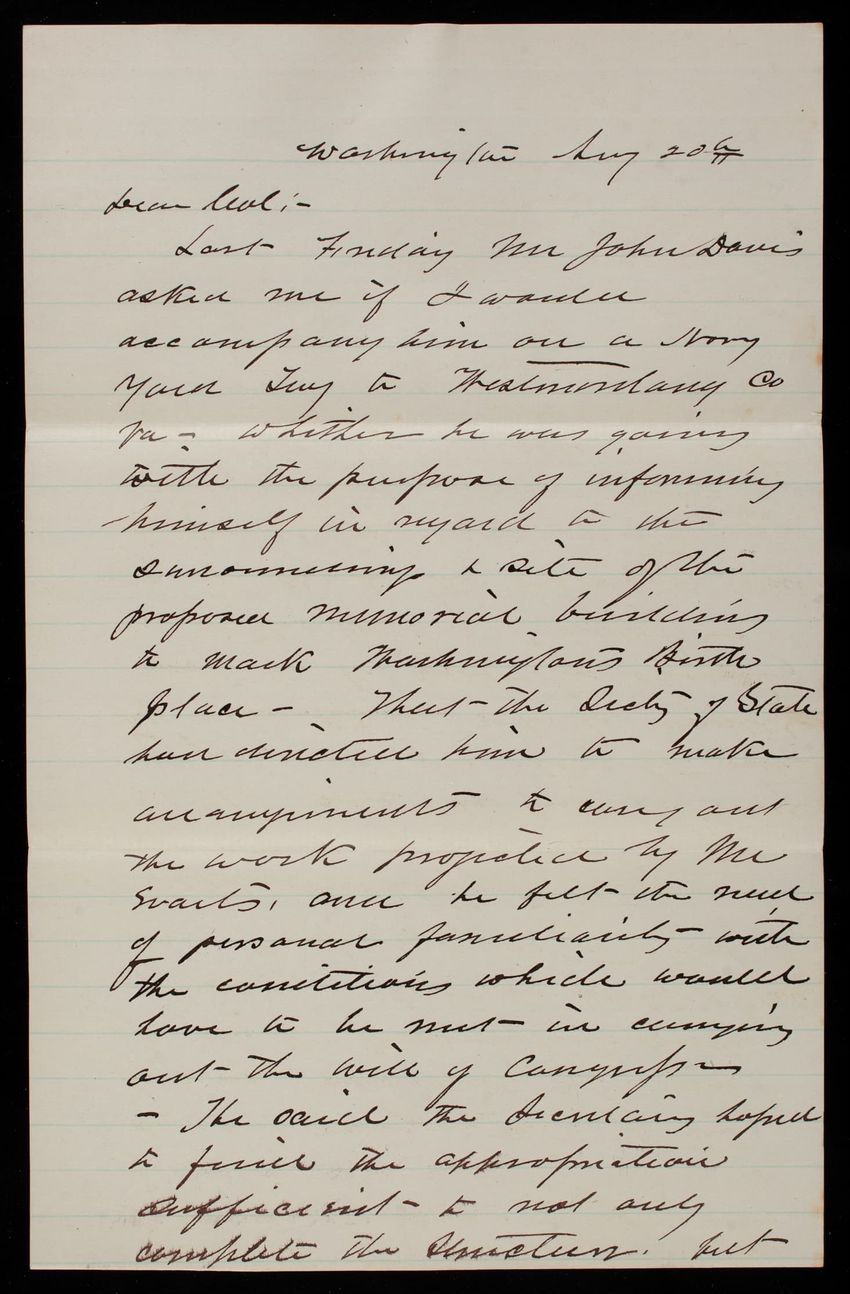 Washington Aug 20th
Dear Col:-
Last Friday Mr John Davis
asked me if I would
accompany him on a Navy
Yard Tug to Westmoreland Co
Va - whither he was going
with the purpose of informing
himself in regard to the
surroundings & site of the
proposed memorial building
to mark Washington's Birth
place - That the Secty of State
had directed him to make
arrangements to carry out
the work projected by Mr
Evarts, and he felt the need
of personal familiarity with
the conditions which would
have to be met in carrying
out the will of Congress
- He said the Secretary hoped
to find the appropriation
sufficient to not only
complete the structure. but